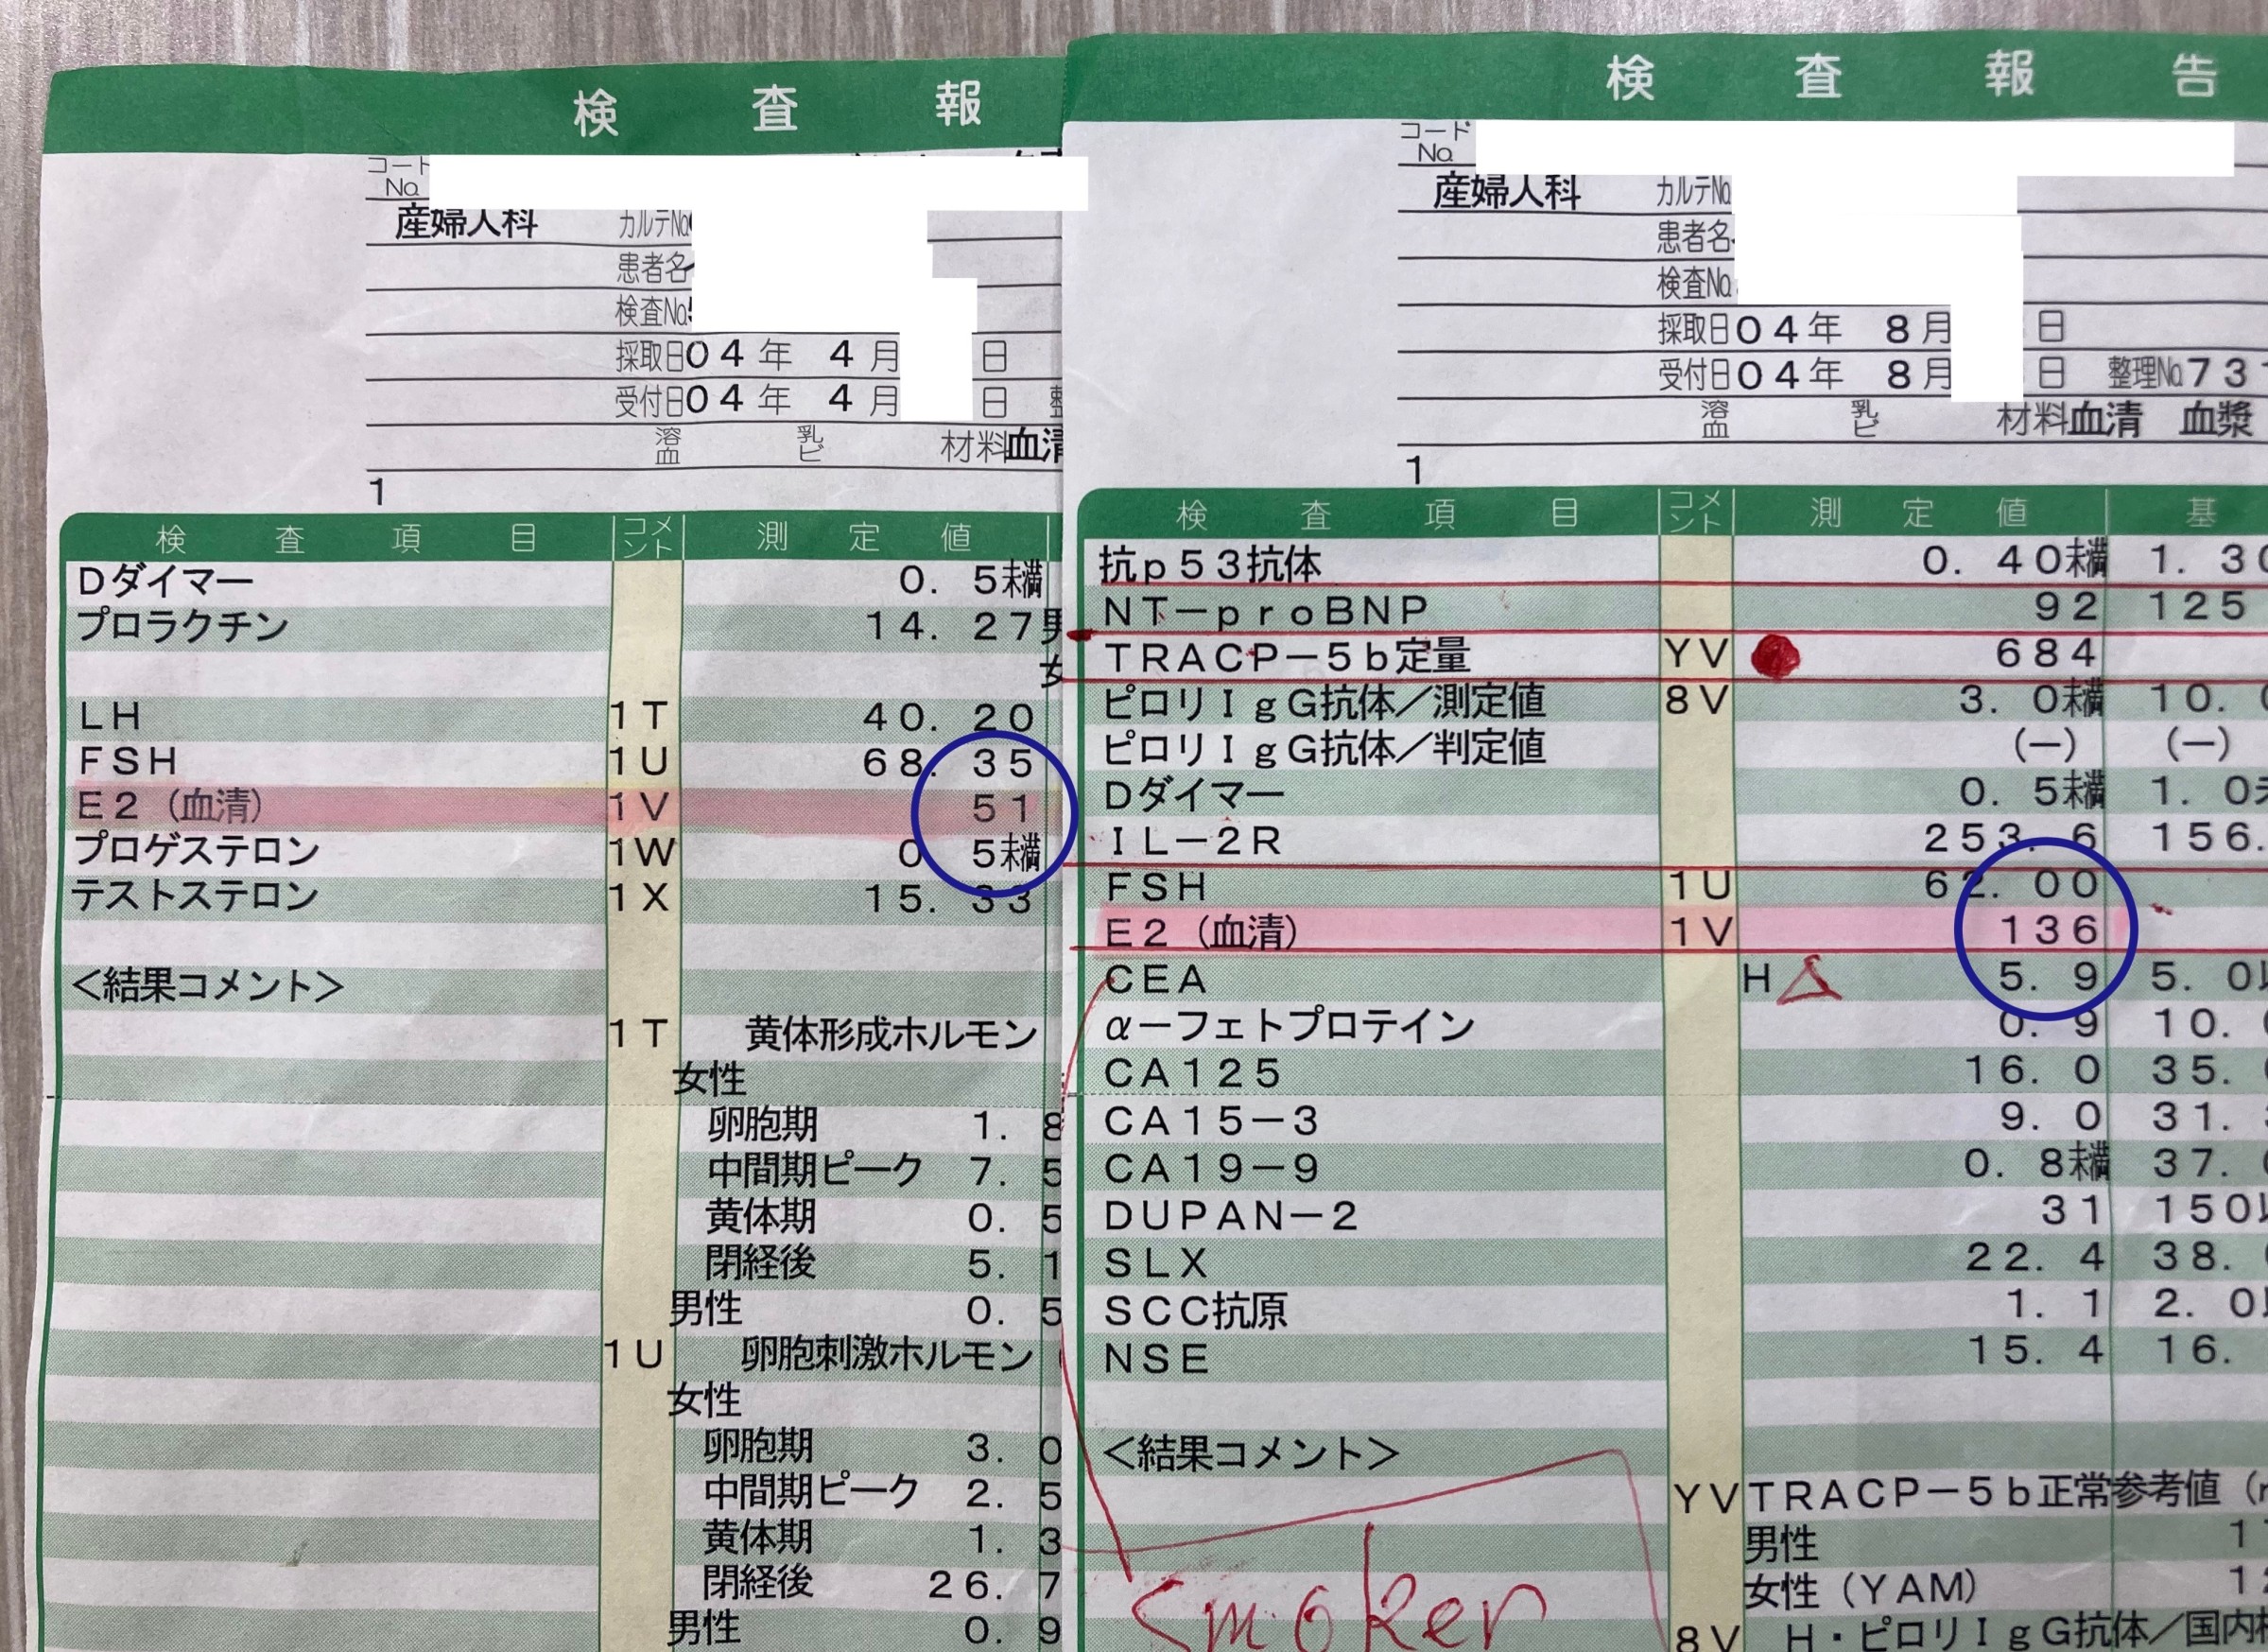 検 査 報
コード
No.
産婦人科 カルテNo.
患者名
検査No.
採取日04年 4月 日
受付日04年 4月 日
溶血 乳ビ 材料血清
1
検 査 項 目 コメント 測 定 値
Dダイマー 0.5未満
プロラクチン 14.27男
女
LH 1T 40.20
FSH 1U 68.35
E2（血清） 1V 51
プロゲステロン 1W 0.5未満
テストステロン 1X 15.33
＜結果コメント＞
1T 黄体形成ホルモン
女性
卵胞期 1.8
中間期ピーク 7.5
黄体期 0.5
閉経後 5.1
男性 0.5
1U 卵胞刺激ホルモン
女性
卵胞期 3.0
中間期ピーク 2.5
黄体期 1.3
閉経後 26.7
男性 0.9
検 査 報 告
コード
No.
産婦人科 カルテNo.
患者名
検査No.
採取日04年 8月 日
受付日04年 8月 日 整理No.73
溶血 乳ビ 材料血清 血漿
1
検 査 項 目 コメント 測 定 値 基
抗p53抗体 0.40未満 1.30
NT－proBNP 92 125
TRACP－5b定量 YV 684
ピロリIgG抗体／測定値 8V 3.0未満 10.
ピロリIgG抗体／判定値 （－） （－）
Dダイマー 0.5未満 1.0未
IL－2R 253.6 156.
FSH 1U 62.00
E2（血清） 1V 136
CEA H 5.9 5.0以
α－フェトプロテイン 0.9 10.
CA125 16.0 35.
CA15－3 9.0 31.
CA19－9 0.8未満 37.
DUPAN－2 31 150以
SLX 22.4 38.
SCC抗原 1.1 2.0以
NSE 15.4 16.
＜結果コメント＞
YV TRACP－5b正常参考値（
男性 1
女性（YAM） 12
8V H・ピロリIgG抗体／国内
smoker